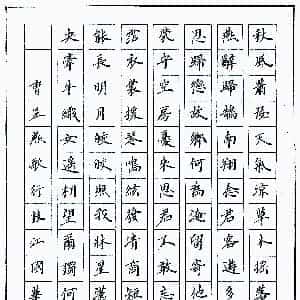 秋風蕭瑟天氣涼草木搖落
燕辭歸鵠南翔念君客遊多
思歸戀故鄉何為淹留寄他
煢守空房憂來思君不敢忘
霑衣裳援琴鳴絃發清商短
能長明月皎皎照我牀星漢
央牽牛織女遙相望爾獨何
曹丕燕歌行江國華